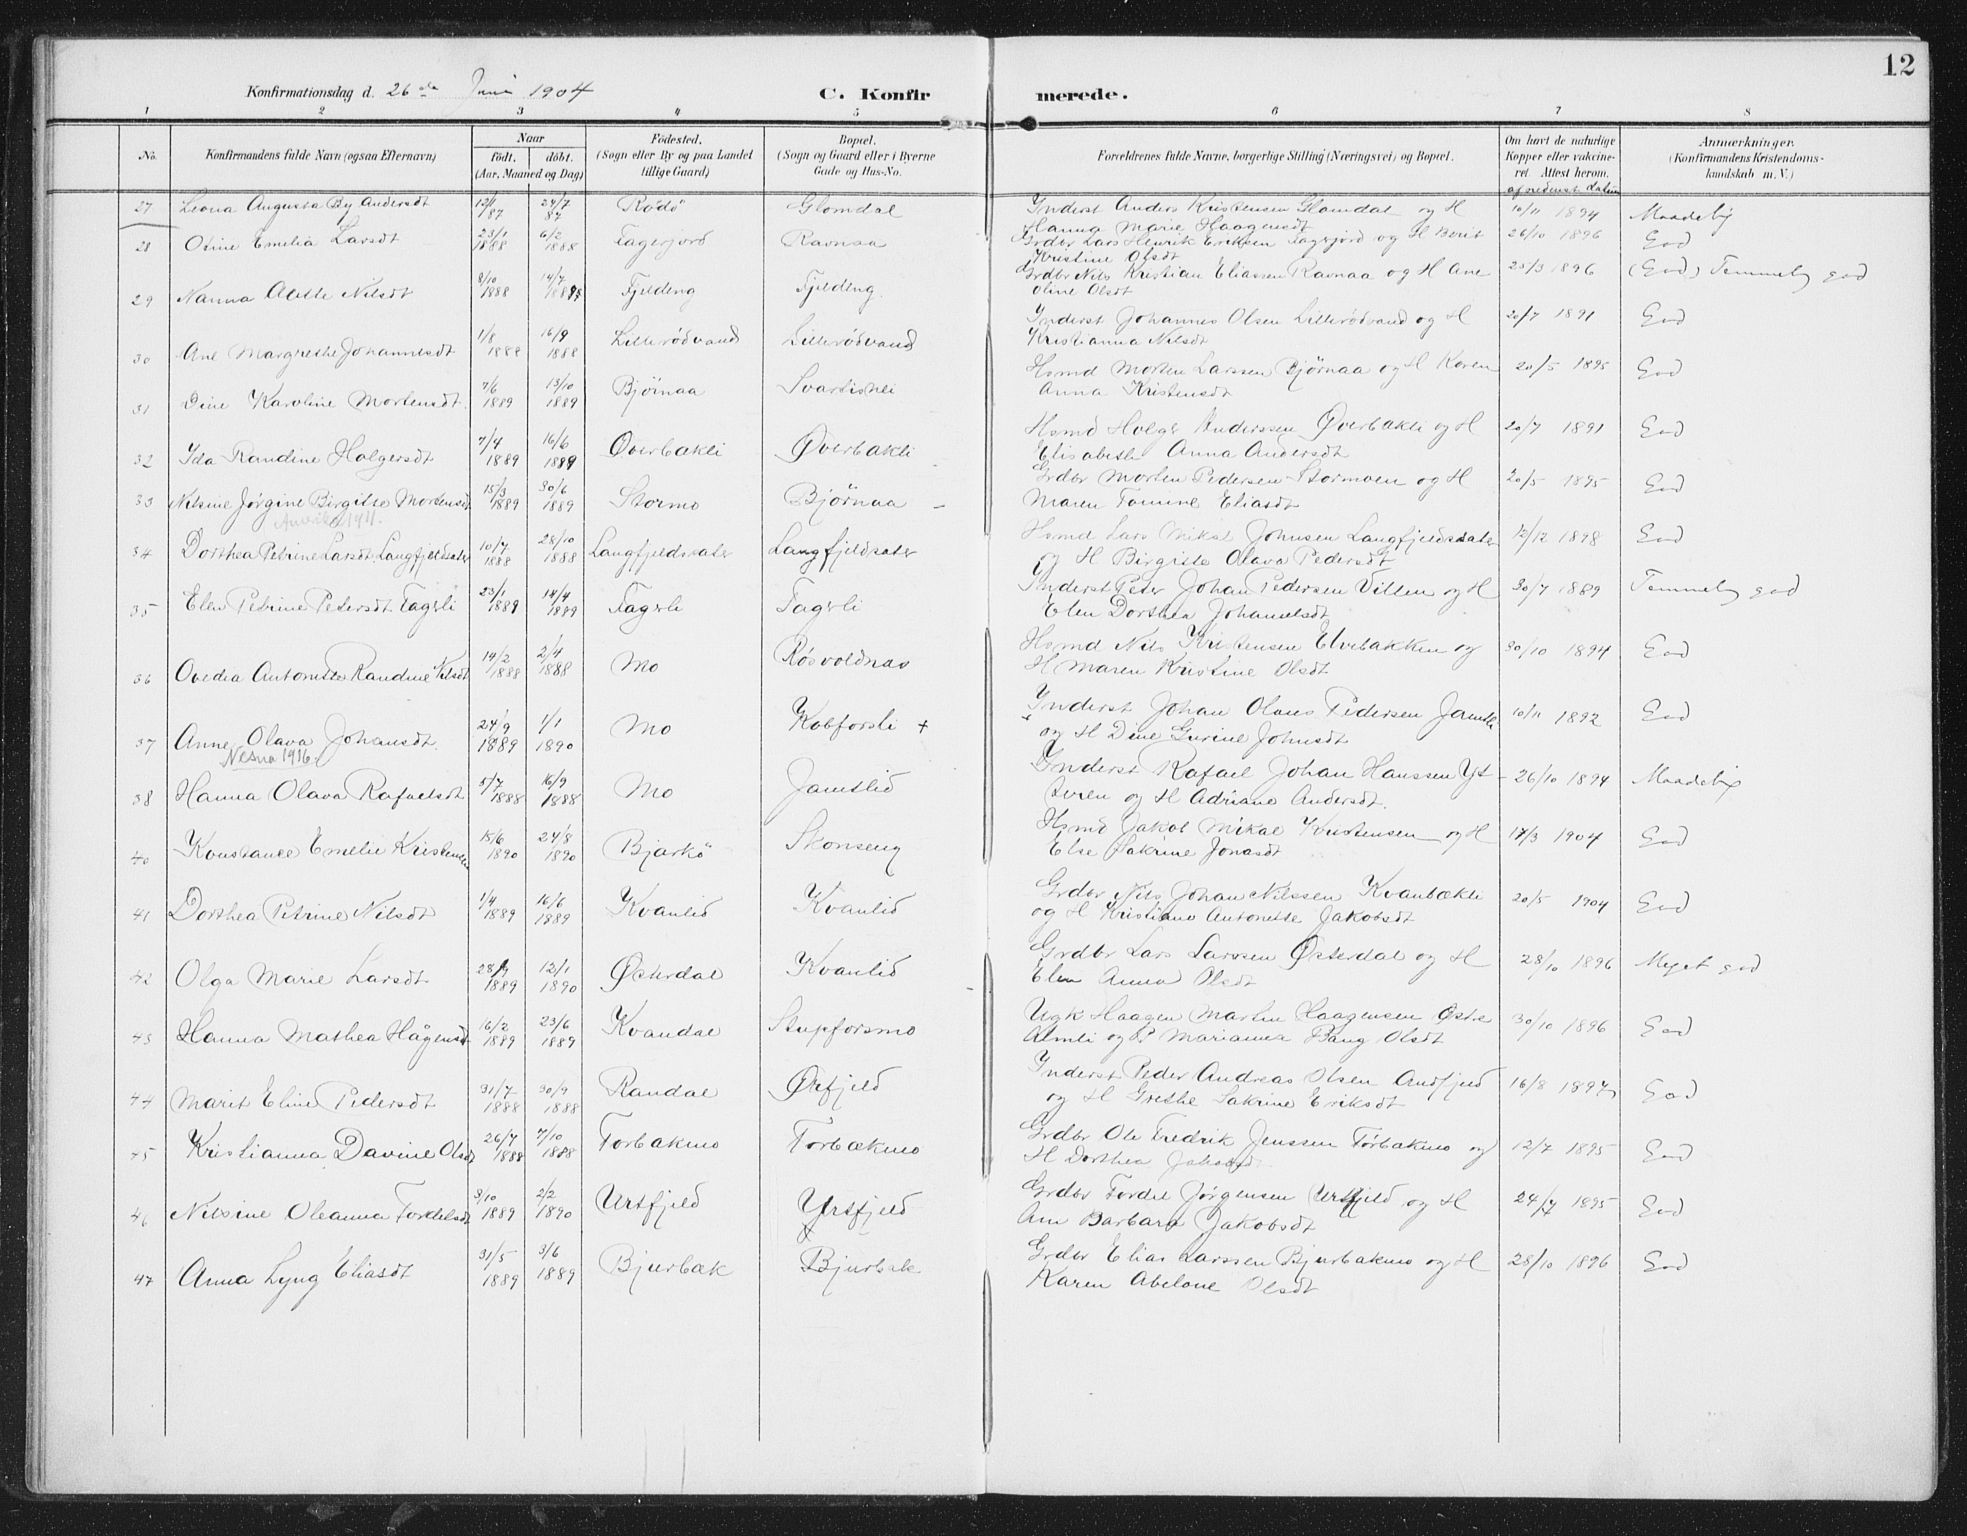 12
Konfirmationsdag d. 26de Juni 1904 C. Konfirmerede.
1 2 3 4 5 6 7 8
No. Konfirmandens fulde Navn (ogsaa Efternavn) Naar født. døbt. (Aar, Maaned og Dag) Fødested. (Sogn eller By og paa Landet tillige Gaard) Bopæl. (Sogn og Gaard eller i Byerne Gade og Hus-No. Forældrenes fulde Navne, borgerlige Stilling (Næringsvei) og Bopæl. Om havt de naturlige Kopper eller vakcineret. Attest herom. Anmærkninger. (Konfirmandens Kristendomskundskab m. V.)
27 Leona Augusta By Andersdt 12/1 87 24/7 87 Rødø Glomdal Inderst Anders Kristensen Glomdal og H 10/11 1894 Maadelig
Hanna Marie Haagensdt
28 Otine Emelia Larsdt 23/1 1888 6/2 1888 Fagerjord Ravnaa Grdbr Lars Henrik Eriksen Fagerjord og H Berit 26/10 1896 God
Kristine Olsdt
29 Nanna Alette Nilsdt 8/10 1888 14/7 Fjeldeng Fjeldeng Grdbr Nils Kristian Eliassen Ravnaa og H Ane 25/3 1896 (God) Temmelig god
Oline Olsdt
30 Ane Margrethe Johannesdt 1/8 1888 16/9 1888 Lillerødvand Lillerødvand Inderst Johannes Olsen Lillerødvand og H 20/7 1891 God
Kristianna Nilsdt
31 Dine Karoline Mortensdt 7/6 1889 13/10 1889 Bjørnaa Svartishei Hsmd Morten Larssen Bjørnaa og H Karen 20/5 1895 God
Anna Kristensdt
32 Ida Randine Holgersdt 7/4 1889 16/6 1889 Øverbakli Øverbakli Hsmd Holger Anderssen Øverbakli og H 20/7 1891 God
Elisabeth Anna Andersdt
33 Nilsine Jørgine Birgitte Mortensdt 15/3 1889 30/6 1889 Stormo Bjørnaa Grdbr Morten Pedersen Stormoen og H 20/5 1895 God
Amerika 1911. Maren Tomine Eliasdt
34 Dorthea Petrine Larsdt Langfjeldsater 10/7 1888 28/10 1888 Langfjeldsater Langfjeldsater Hsmd Lars Mikal Johnsen Langfjeldsater 12/12 1898 God
og H Birgitte Olava Pedersdt
35 Elen Petrine Pedersdt Fagerli 23/1 1889 14/4 1889 Fagerli Fagerli Inderst Peder Johan Pedersen Villen og H 30/7 1889 Temmelig god
Elen Dorthea Johannesdt
36 Ovedia Antonette Randine Nilsdt 14/2 1888 2/4 1888 Mo Røsvoldnæs Hsmd Nils Kristensen Elvebakken og 30/10 1894 God
H Maren Kristine Olsdt
37 Anne Olava Johansdt 24/9 1889 1/1 1890 Mo Kobforsli + Inderst Johan Olaus Pedersen Jamtli 10/11 1892 God
Nesna 1916. + og H Dine Gurine Johnsdt
38 Hanna Olava Rafaelsdt 5/7 1888 16/9 1888 Mo Jamtlid Inderst Rafael Johan Hanssen Yt- 26/10 1894 Maadelig
teren og H Adriane Andersdt.
40 Konstance Emelie Kristensen 15/6 1890 24/8 1890 Bjarkö Skonseng Hsmd Jakob Mikal Kristensen og H 17/3 1904 God
Else Sakrine Jonasdt
41 Dorthea Petrine Nilsdt 1/4 1889 16/6 1889 Kvanlid Kvanlid Grdbr Nils Johan Nilssen Kvanbækli 20/5 1904 God
og H Kristiane Antonette Jakobsdt
42 Olga Marie Larsdt 28/9 1889 12/1 1890 Østerdal Kvanlid Grdbr Lars Larssen Østerdal og H 28/10 1896 Meget god
Elen Anna Olsdt
43 Hanna Mathea Hågensdt 16/2 1889 23/6 1889 Kvandal Stupforsmo Ugk Haagen Martin Haagensen Østre 30/10 1896 God
Almli og P Marianna Bang Olsdt
44 Marit Eline Pedersdt 31/7 1888 30/9 1888 Randal Ørfjeld Inderst Peder Andreas Olsen Andfjeld 16/8 1897 God
og H Grethe Sakrine Eriksdt
45 Kristianna Davine Olsdt 26/7 1888 7/10 1888 Forbakmo Forbækmo Grdbr Ole Fredrik Jenssen Forbækmo og 12/7 1895 God
H Dorthea
46 Nilsine Oleanna Fordelsdt 3/10 1889 2/2 1890 Urtfjeld Yrtfjeld Grdbr Fordel Jørgensen Urtfjeld og H 24/7 1895 God
Ane Barbara Jakobsdt
47 Anna Lyng Eliasdt 31/5 1889 3/6 1889 Bjurbæk Bjurbæk Grdbr Elias Larssen Bjurbækmo og H 28/10 1896 God
Karen Abelone Olsdt